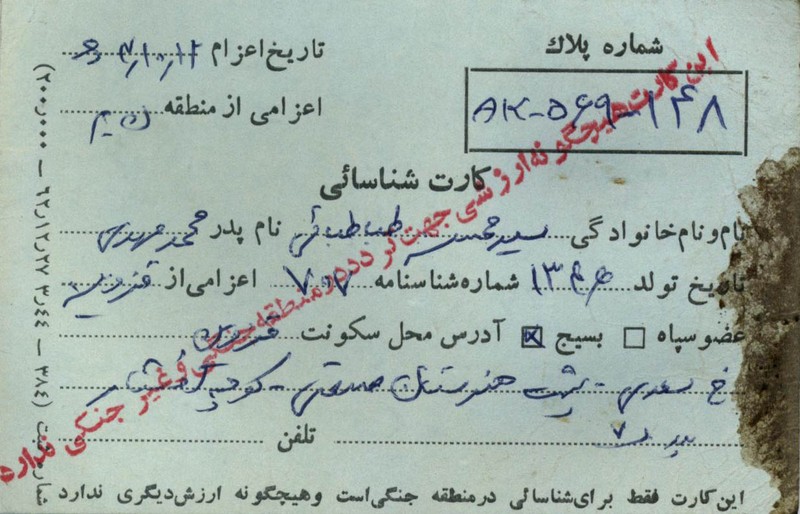 شماره پلاك
AK-۵۶۹-۱۴۸
تاریخ اعزام ۶۳/۱۰/۱۲
اعزامی از منطقه
کارت شناسائی
نام و نام خانوادگی سید حسن طباطبائی نام پدر محمد مهدی
تاریخ تولد ۱۳۴۶ شماره شناسنامه ۷۰۷ اعزامی از قزوین
عضو سپاه بسیج آدرس محل سکونت قزوین
خ سعدی - پشت هنرستان - کوچه
پلاک ۷ تلفن
این کارت فقط برای شناسائی در منطقه جنگی است و هیچگونه ارزش دیگری ندارد
این کارت هیچگونه ارزشی جهت تردد در منطقه جنگی و غیر جنگی ندارد
(۲۰۰ر۰۰۰ — ۶۲/۱۲/۲۷ ۳٫۴۴ — ۳۸۴)